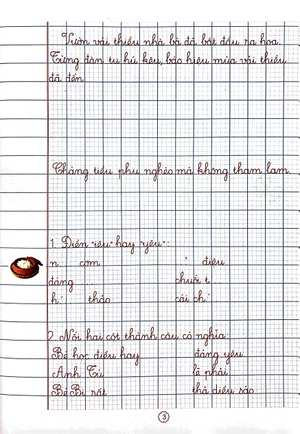 Vườn vải thiều nhà bà đã bắt đầu ra hoa.
Từng đàn tu hú kêu, báo hiệu mùa vải thiều
đã đến.
Chàng tiều phu nghèo mà không tham lam.
1. Điền "iêu" hay "yêu":
n... cơm ... điệu
đáng ... chuối t...
h... thảo cái ch...
2. Nối hai cột thành câu có nghĩa:
Bé học điều hay đáng yêu.
Anh Tú lẽ phải.
Bé Bi rất thả diều sáo.
3